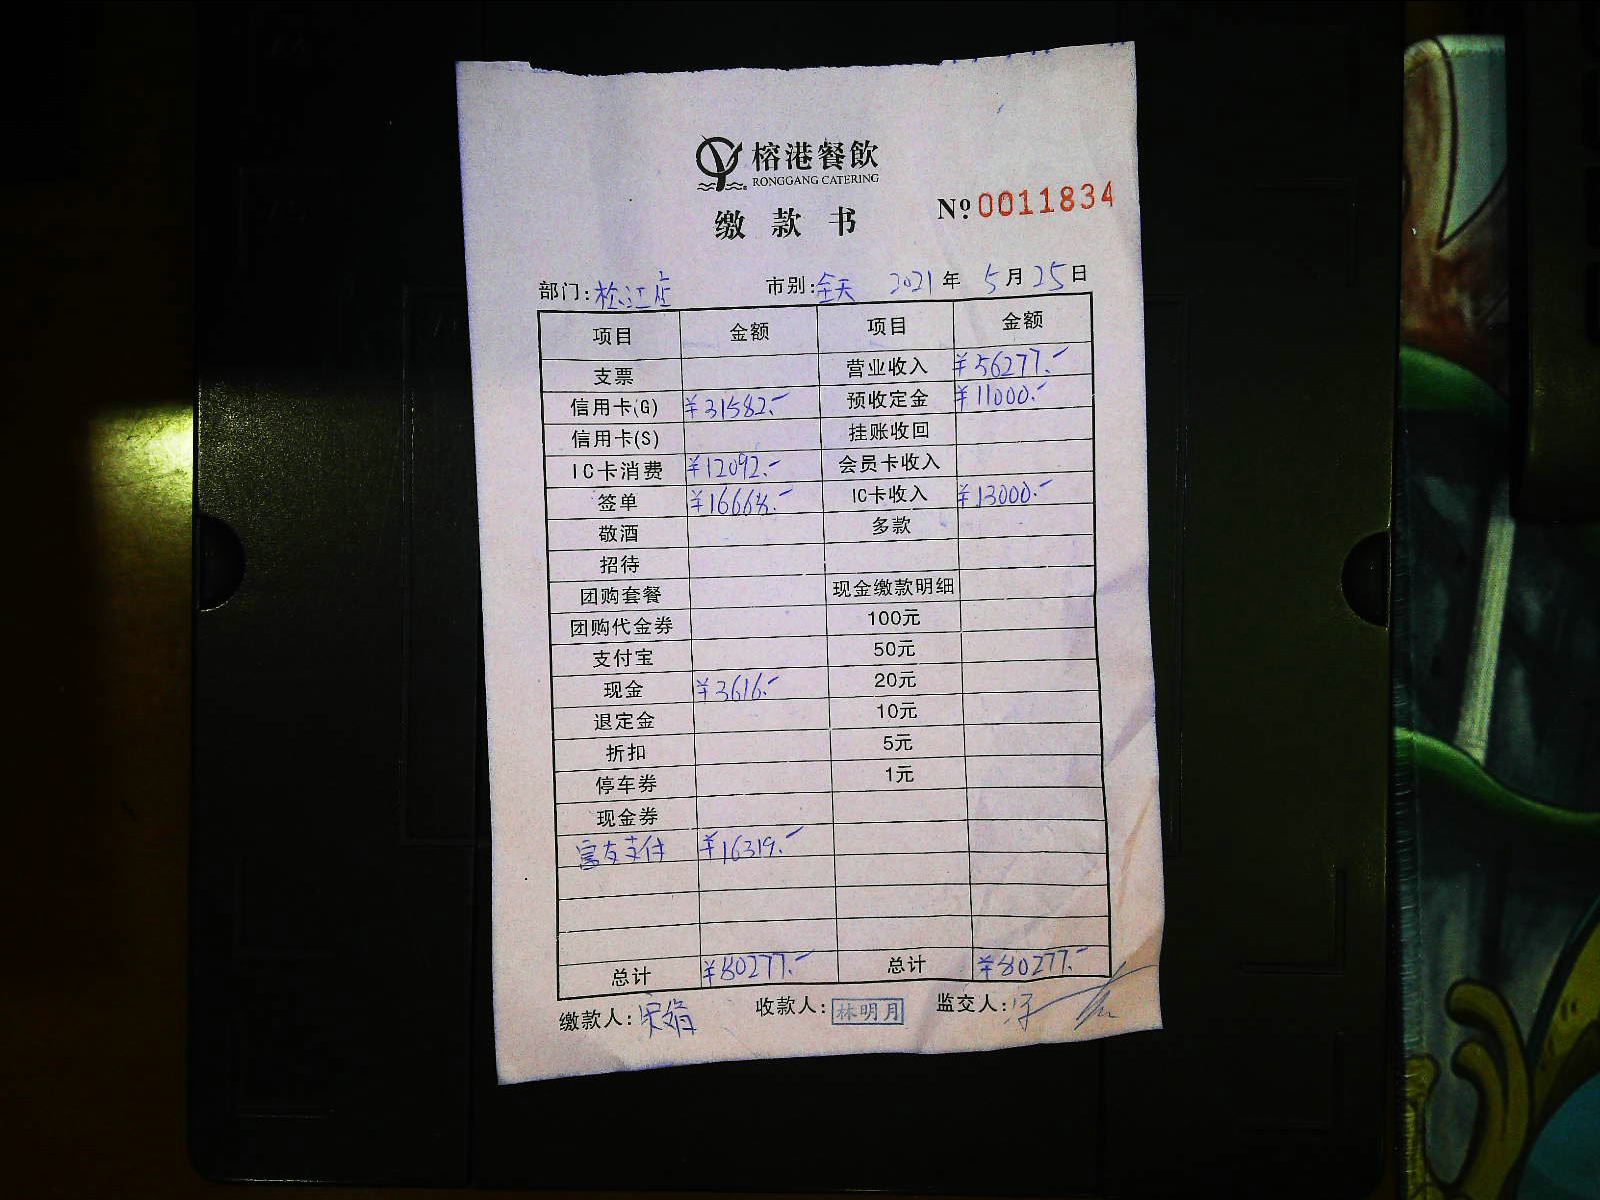 榕港餐飲
RONGGANG CATERING
缴款书
Nº 0011834
部门:松江店 市别:全天 2021年5月25日
项目 金额 项目 金额
支票 营业收入 ¥56277.-
信用卡(G) ¥31582.- 预收定金 ¥11000.-
信用卡(S) 挂账收回
IC卡消费 ¥12092.- 会员卡收入
签单 ¥16668.- IC卡收入 ¥13000.-
敬酒 多款
招待
团购套餐 现金缴款明细
团购代金券 100元
支付宝 50元
现金 ¥3616.- 20元
退定金 10元
折扣 5元
停车券 1元
现金券
富友支付 ¥16319.-
总计 ¥80277.- 总计 ¥80277.-
缴款人:宋娟 收款人:林明月 监交人: